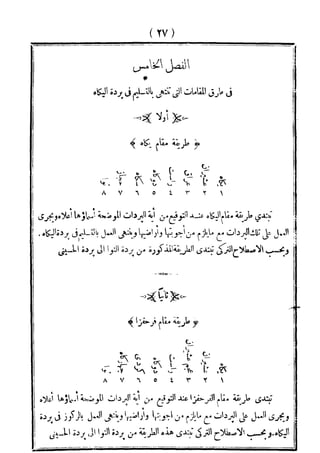 ( ٢٧ )
الفصل الخامس
فى طرق المقامات التى تنتهى بالتسليم فى بردة اليكاه
أولا
طريقة مقام يكاه
يكاه عشيران عراق راست دوكاه سيكاه حجاز نوا
١ ٢ ٣ ٤ ٥ ٦ ٧ ٨
تبتدي طريقة مقام اليكاه عند التوقيع من أية البردات الموضحة أسماؤها أعلاه ويجرى
العمل على تلك البردات مع مايلزم من أجوبتها وأراضيها وينتهى العمل بالتسليم فى بردة اليكاه .
وبحسب الاصطلاح التركى تبتدى الطريقة المذكورة من بردة النوا الى بردة الحسينى
ثانيا
طريقة مقام فرحفزا
يكاه عشيران عجم عشيران راست دوكاه كردى نوا
١ ٢ ٣ ٤ ٥ ٦ ٧ ٨
تبتدى طريقة مقام الفرحفزا عند التوقيع من أية البردات الموضحة أسماؤها أعلاه
ويجرى العمل على البردات مع مايلزم من اجوبتها واراضيها وينتهى العمل بالركوز فى بردة
اليكاه . وبحسب الاصطلاح التركى تبتدى هذه الطريقة من بردة النوا الى بردة الحسينى